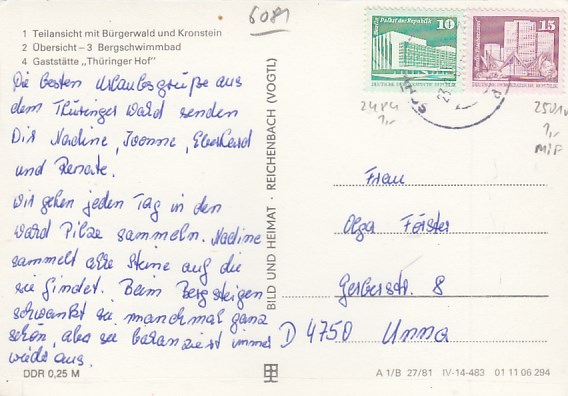 6081
1 Teilansicht mit Bürgerwald und Kronstein
2 Übersicht – 3 Bergschwimmbad
4 Gaststätte „Thüringer Hof"
Die besten Urlaubsgrüße aus
dem Thüringer Wald senden
Dir Nadine, Ivonne, Eberhard
und Renate.
Wir gehen jeden Tag in den
Wald Pilze sammeln. Nadine
sammelt alle Steine auf die
sie findet. Beim Bergsteigen
schwankt sie manchmal ganz
schön, aber sie balanziert immer
wieder aus.
DDR 0,25 M
BILD UND HEIMAT · REICHENBACH (VOGTL)
Berlin Palast der Republik 10
DEUTSCHE DEMOKRATISCHE REPUBLIK
15
DEUTSCHE DEMOKRATISCHE REPUBLIK
2484
1,-
1,-
MiF
Frau
Olga Förster
Gerberstr. 8
D 4750 Unna
A 1/B 27/81 IV-14-483 01 11 06 294